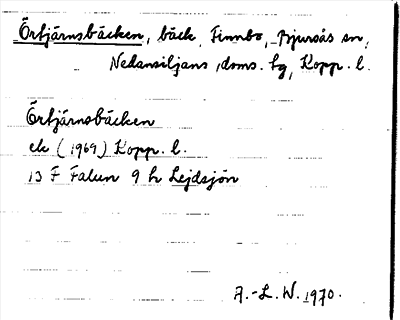 Örtjärnsbäcken, bäck, Finnbo, Bjursås sn,
Nedansiljans doms. hg, Kopp. l.
Örtjärnsbäcken
ek (1969) Kopp. l.
13 F Falun 9 h Lejdsjön
A.-L. W. 1970.